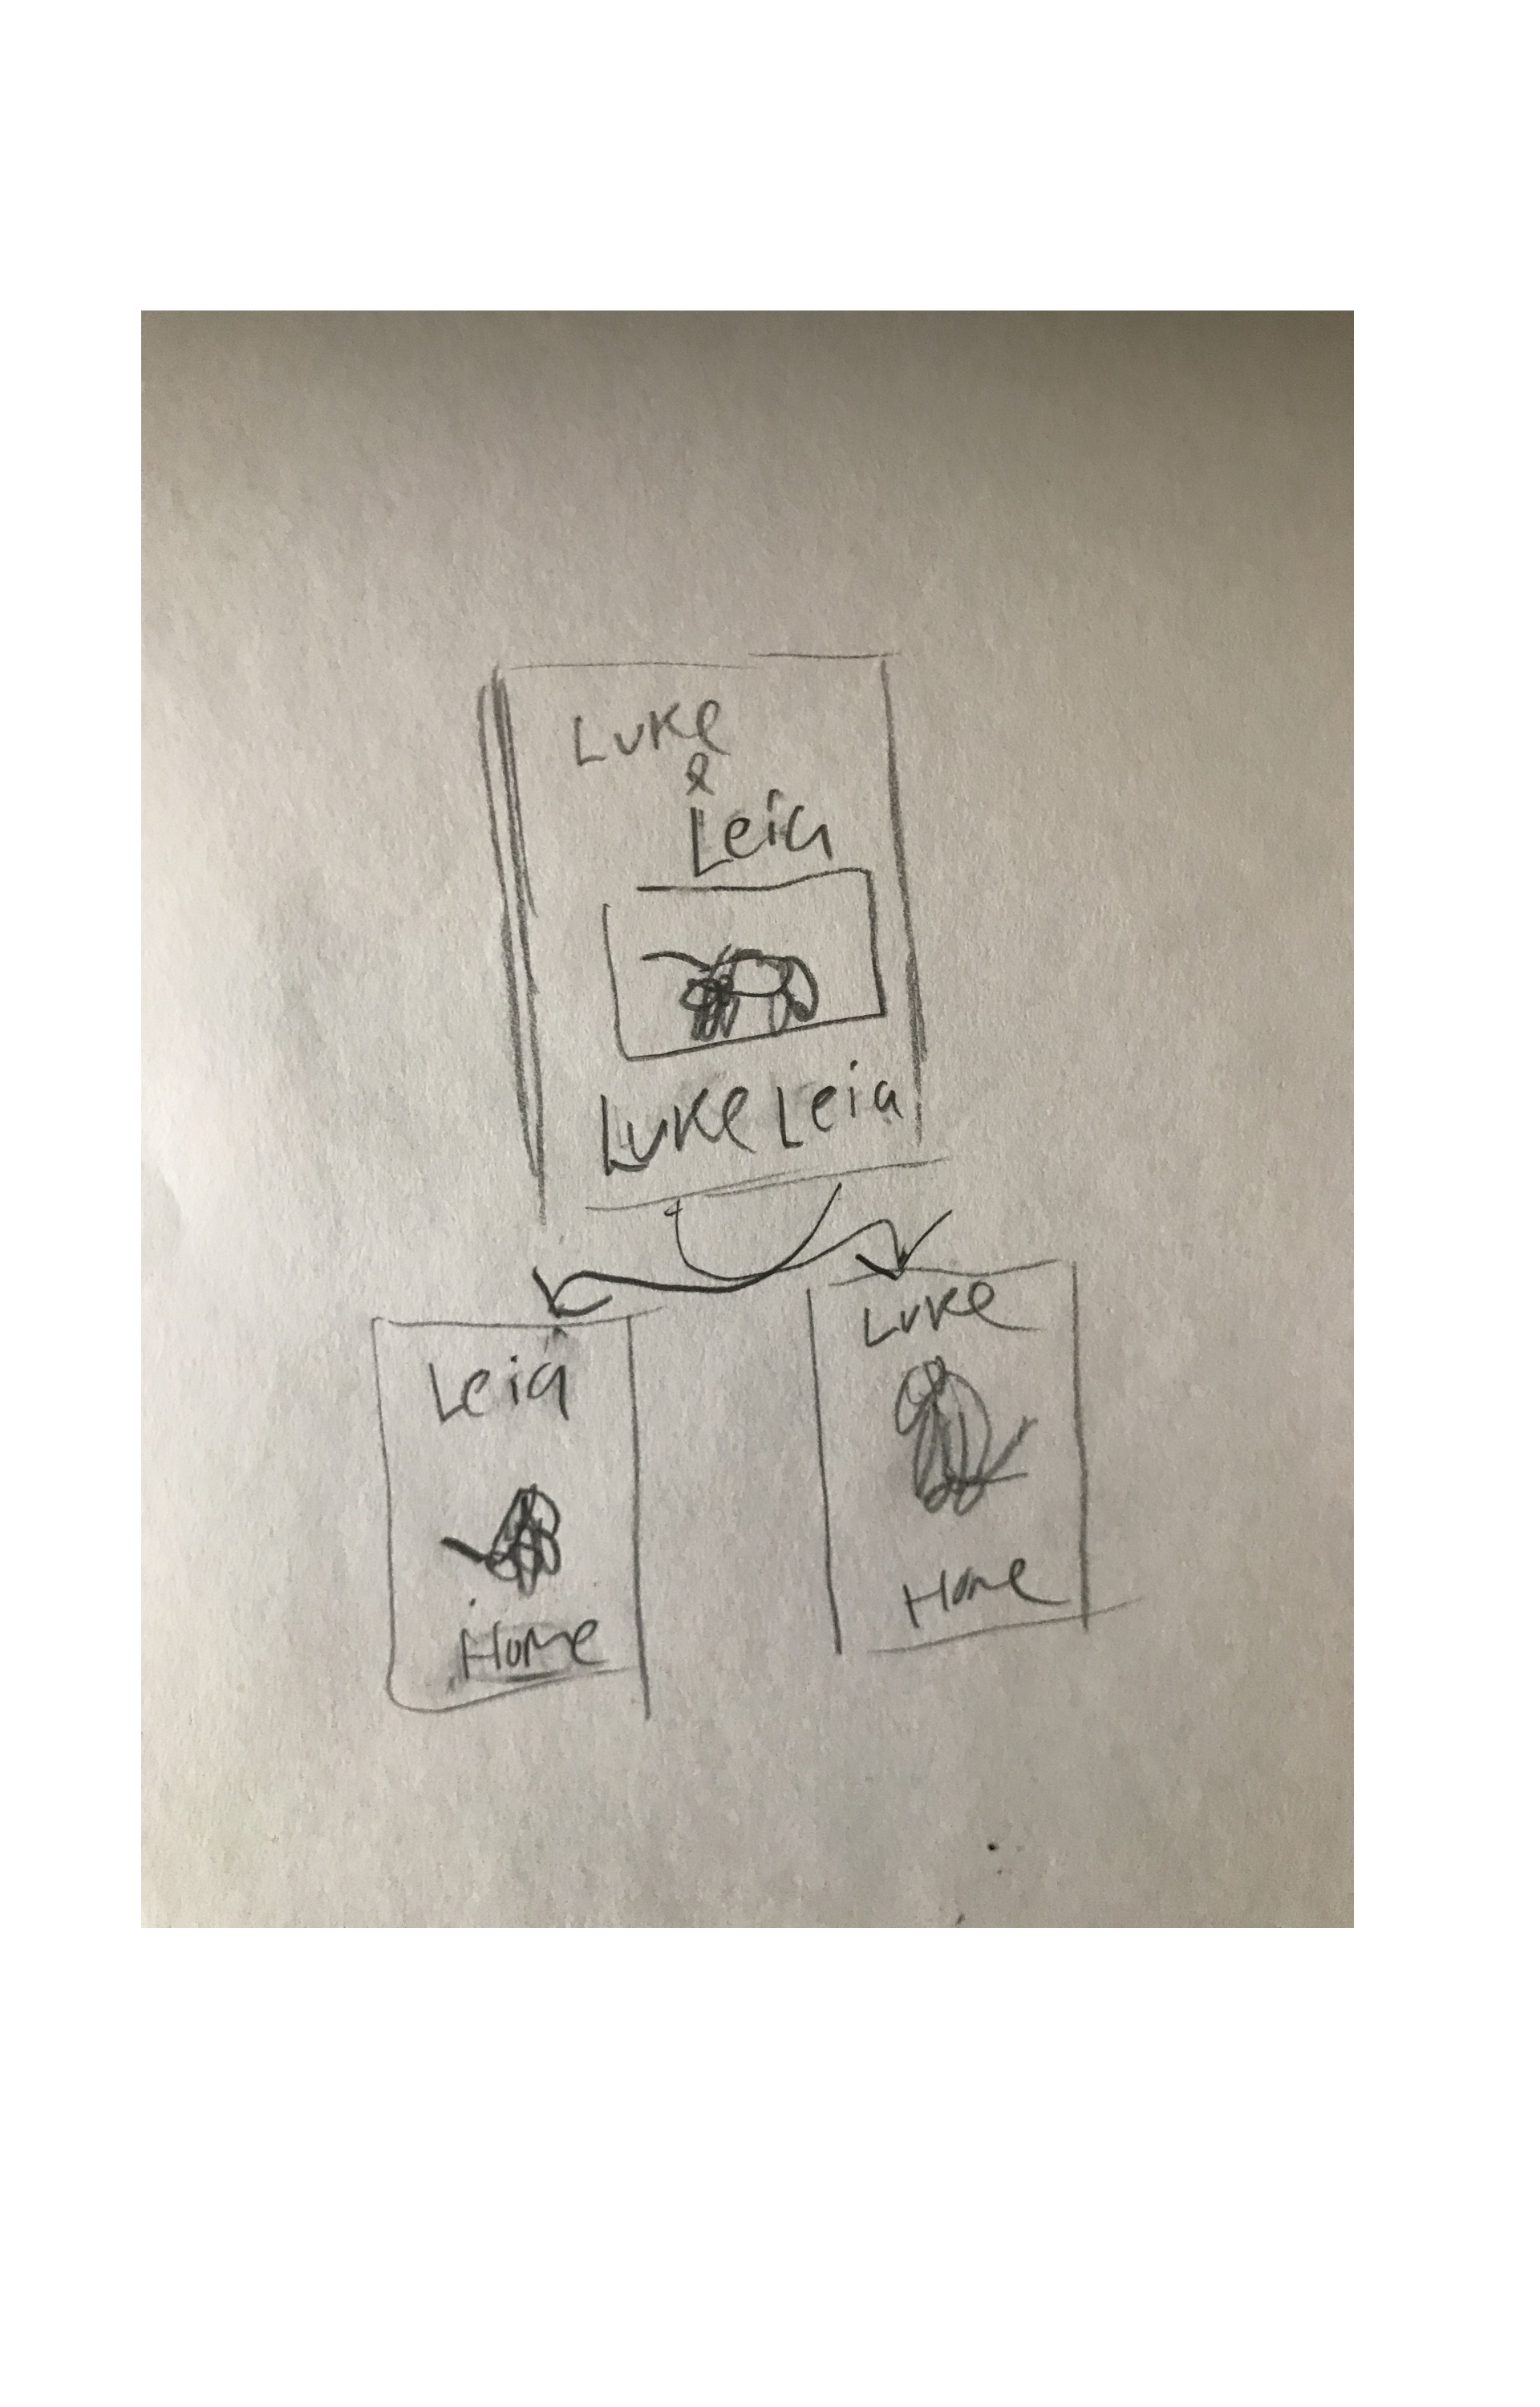 Luke
&
Leia
Luke Leia
Leia
Home
Luke
Home